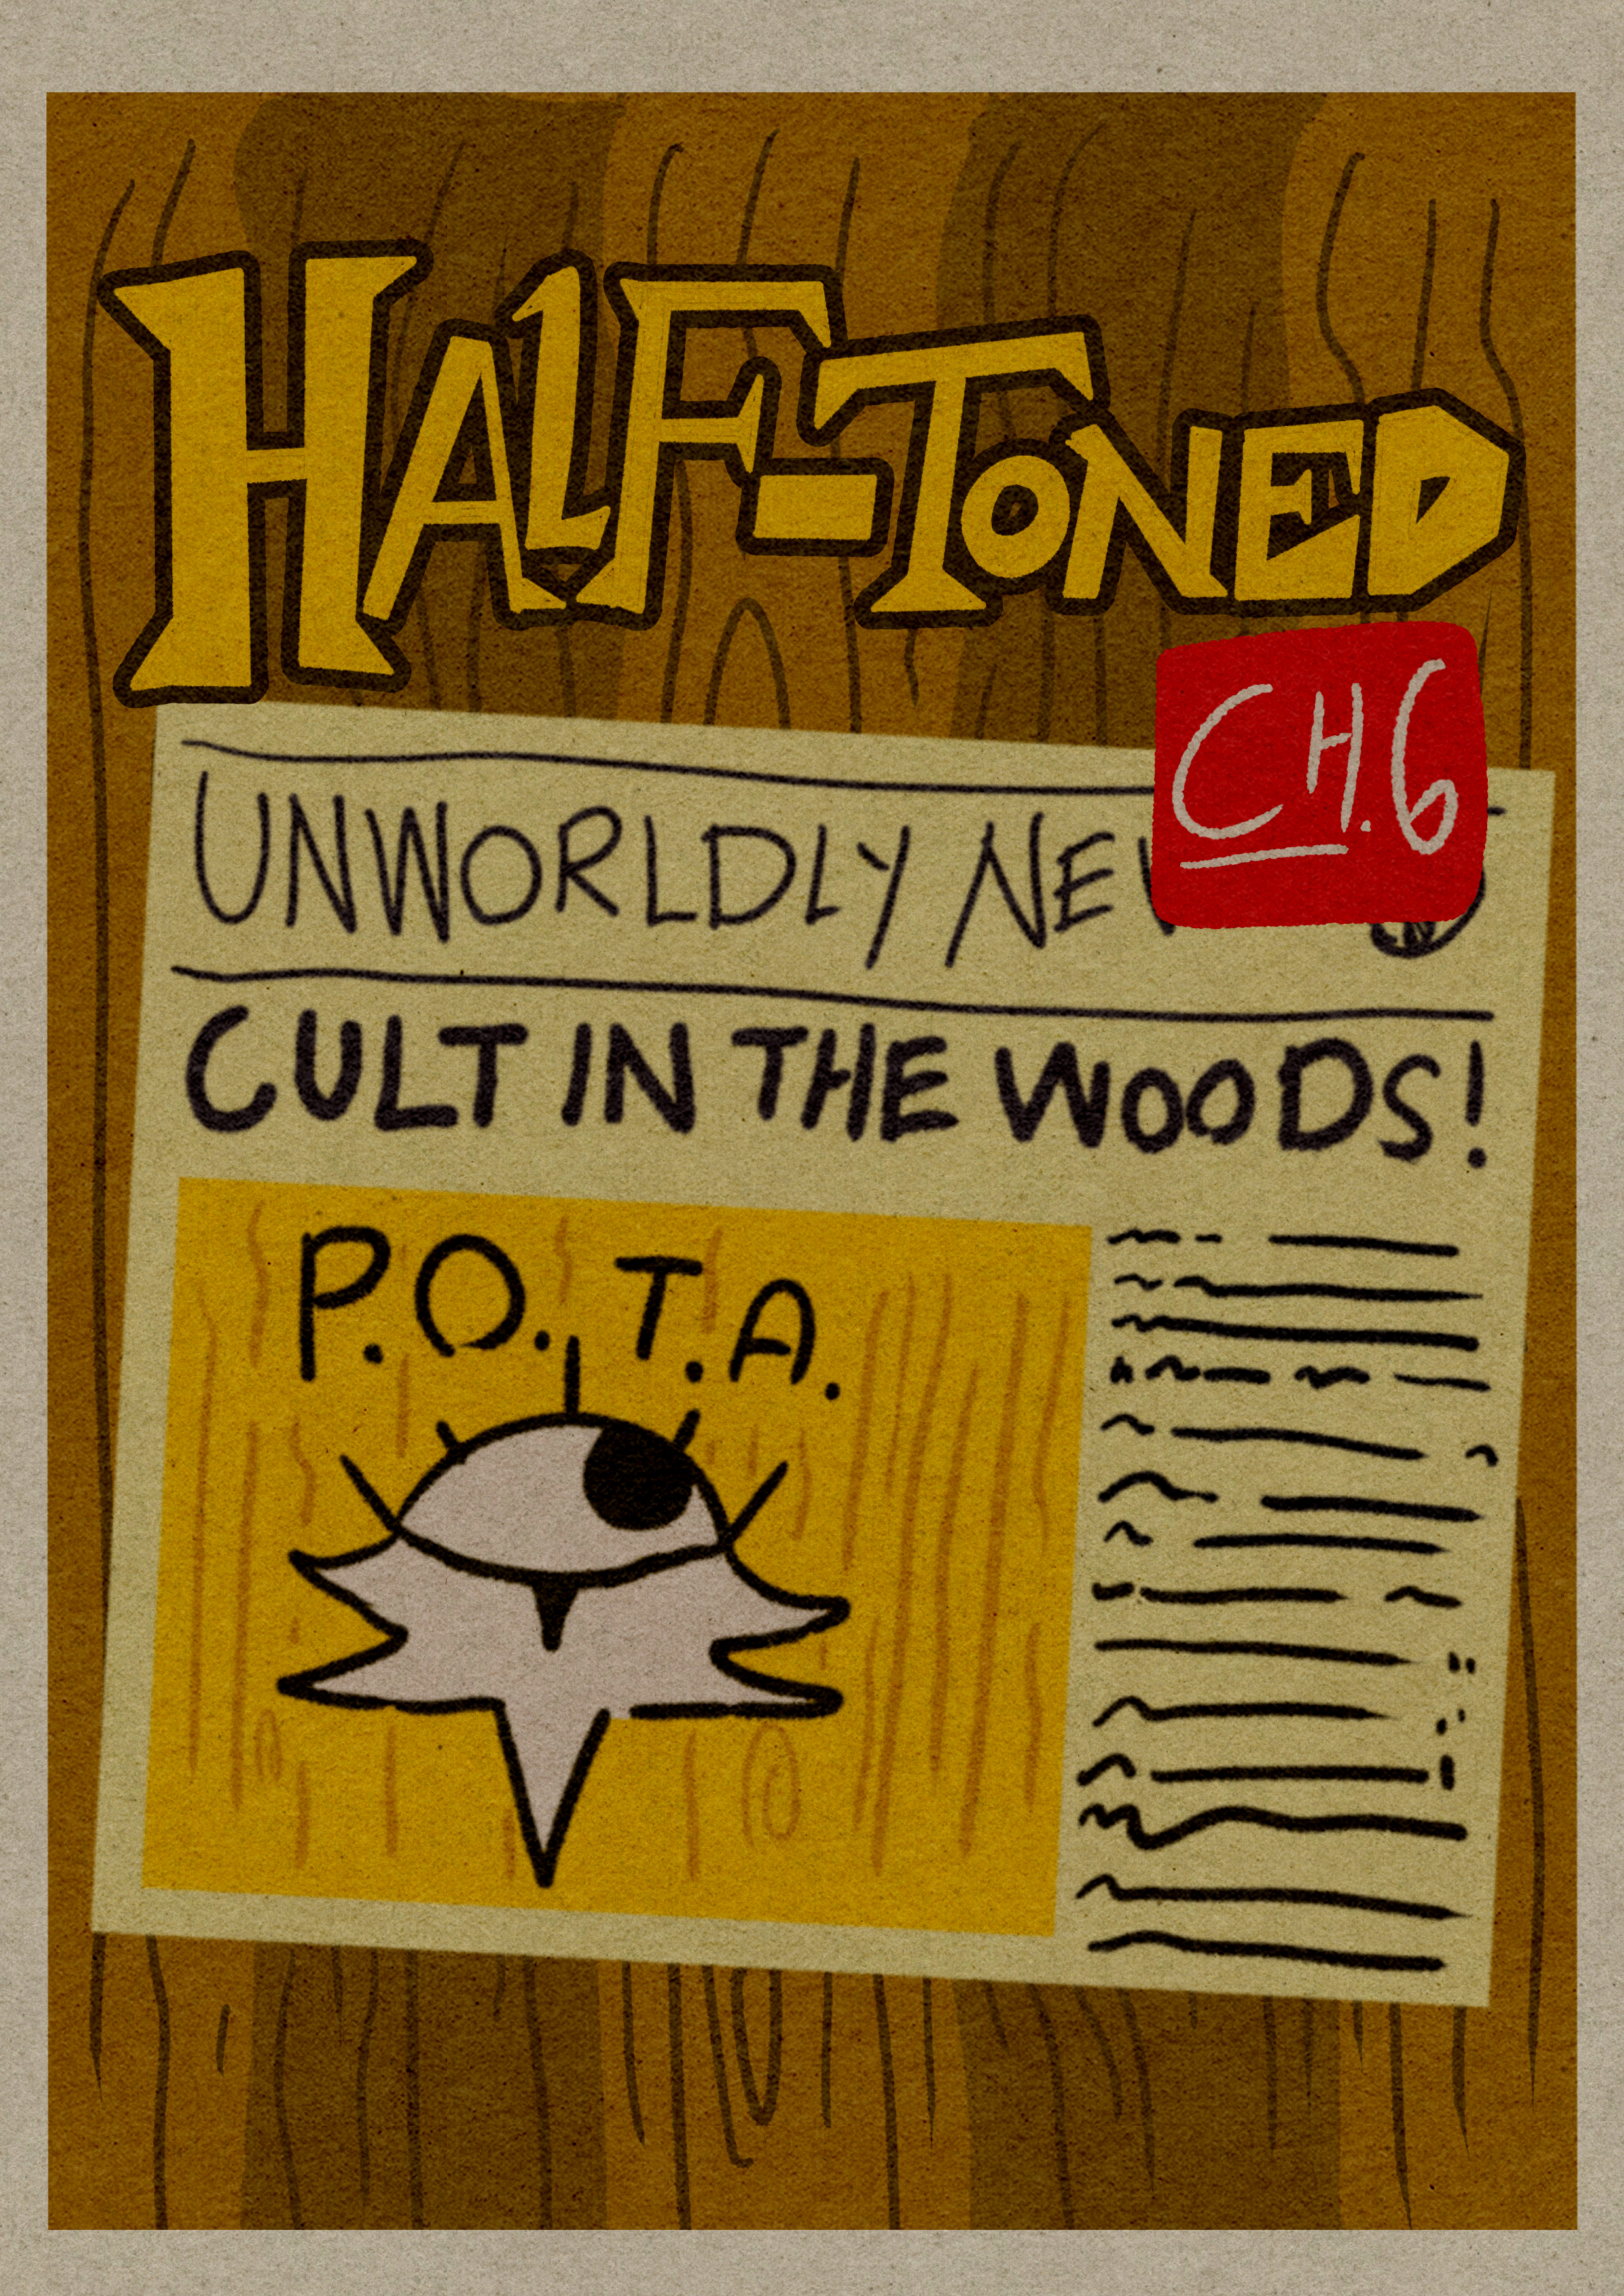 HALF-TONED
CH.6
UNWORLDLY
CULT IN THE WOODS!
P.O.T.A.